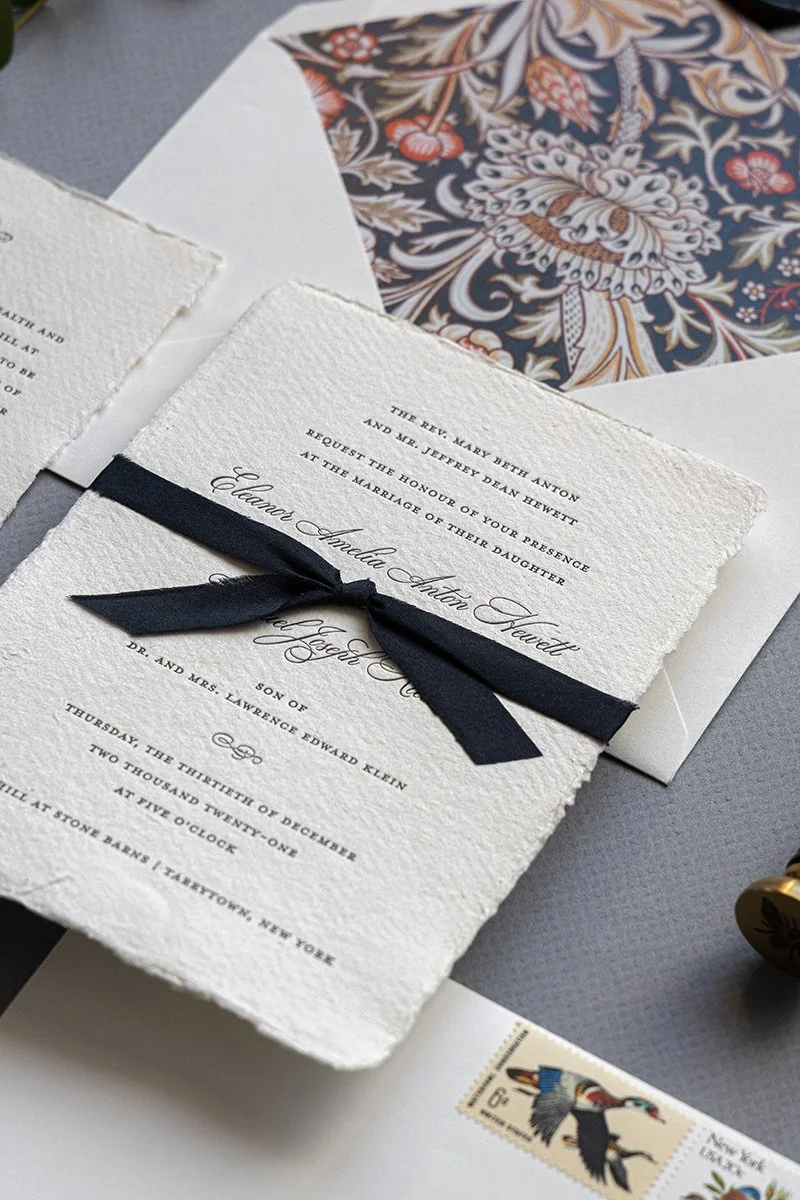 EALTH AND
ILL AT
TO BE
OF
THE REV. MARY BETH ANTON
AND MR. JEFFREY DEAN HEWETT
REQUEST THE HONOUR OF YOUR PRESENCE
AT THE MARRIAGE OF THEIR DAUGHTER
Eleanor Amelia Anton Hewett
Joseph
SON OF
DR. AND MRS. LAWRENCE EDWARD KLEIN
THURSDAY, THE THIRTIETH OF DECEMBER
TWO THOUSAND TWENTY-ONE
AT FIVE O'CLOCK
HILL AT STONE BARNS | TARRYTOWN, NEW YORK
WATERFOWL CONSERVATION
6¢
UNITED STATES
New York
USA 20c